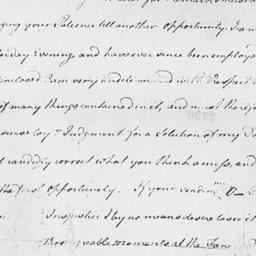 ging your Patience till another opportunity. I am
terday Evening and have ever since been employ
enclosed I am very undetermined with Respect
of many things contained in it, and must therefo
course to yr Judgment for a Solution of my Do
candidly correct what you think amiss, and
the first opportunity. If your sending
Injustice I by no means desire to see it
agreeable moments at the Fare